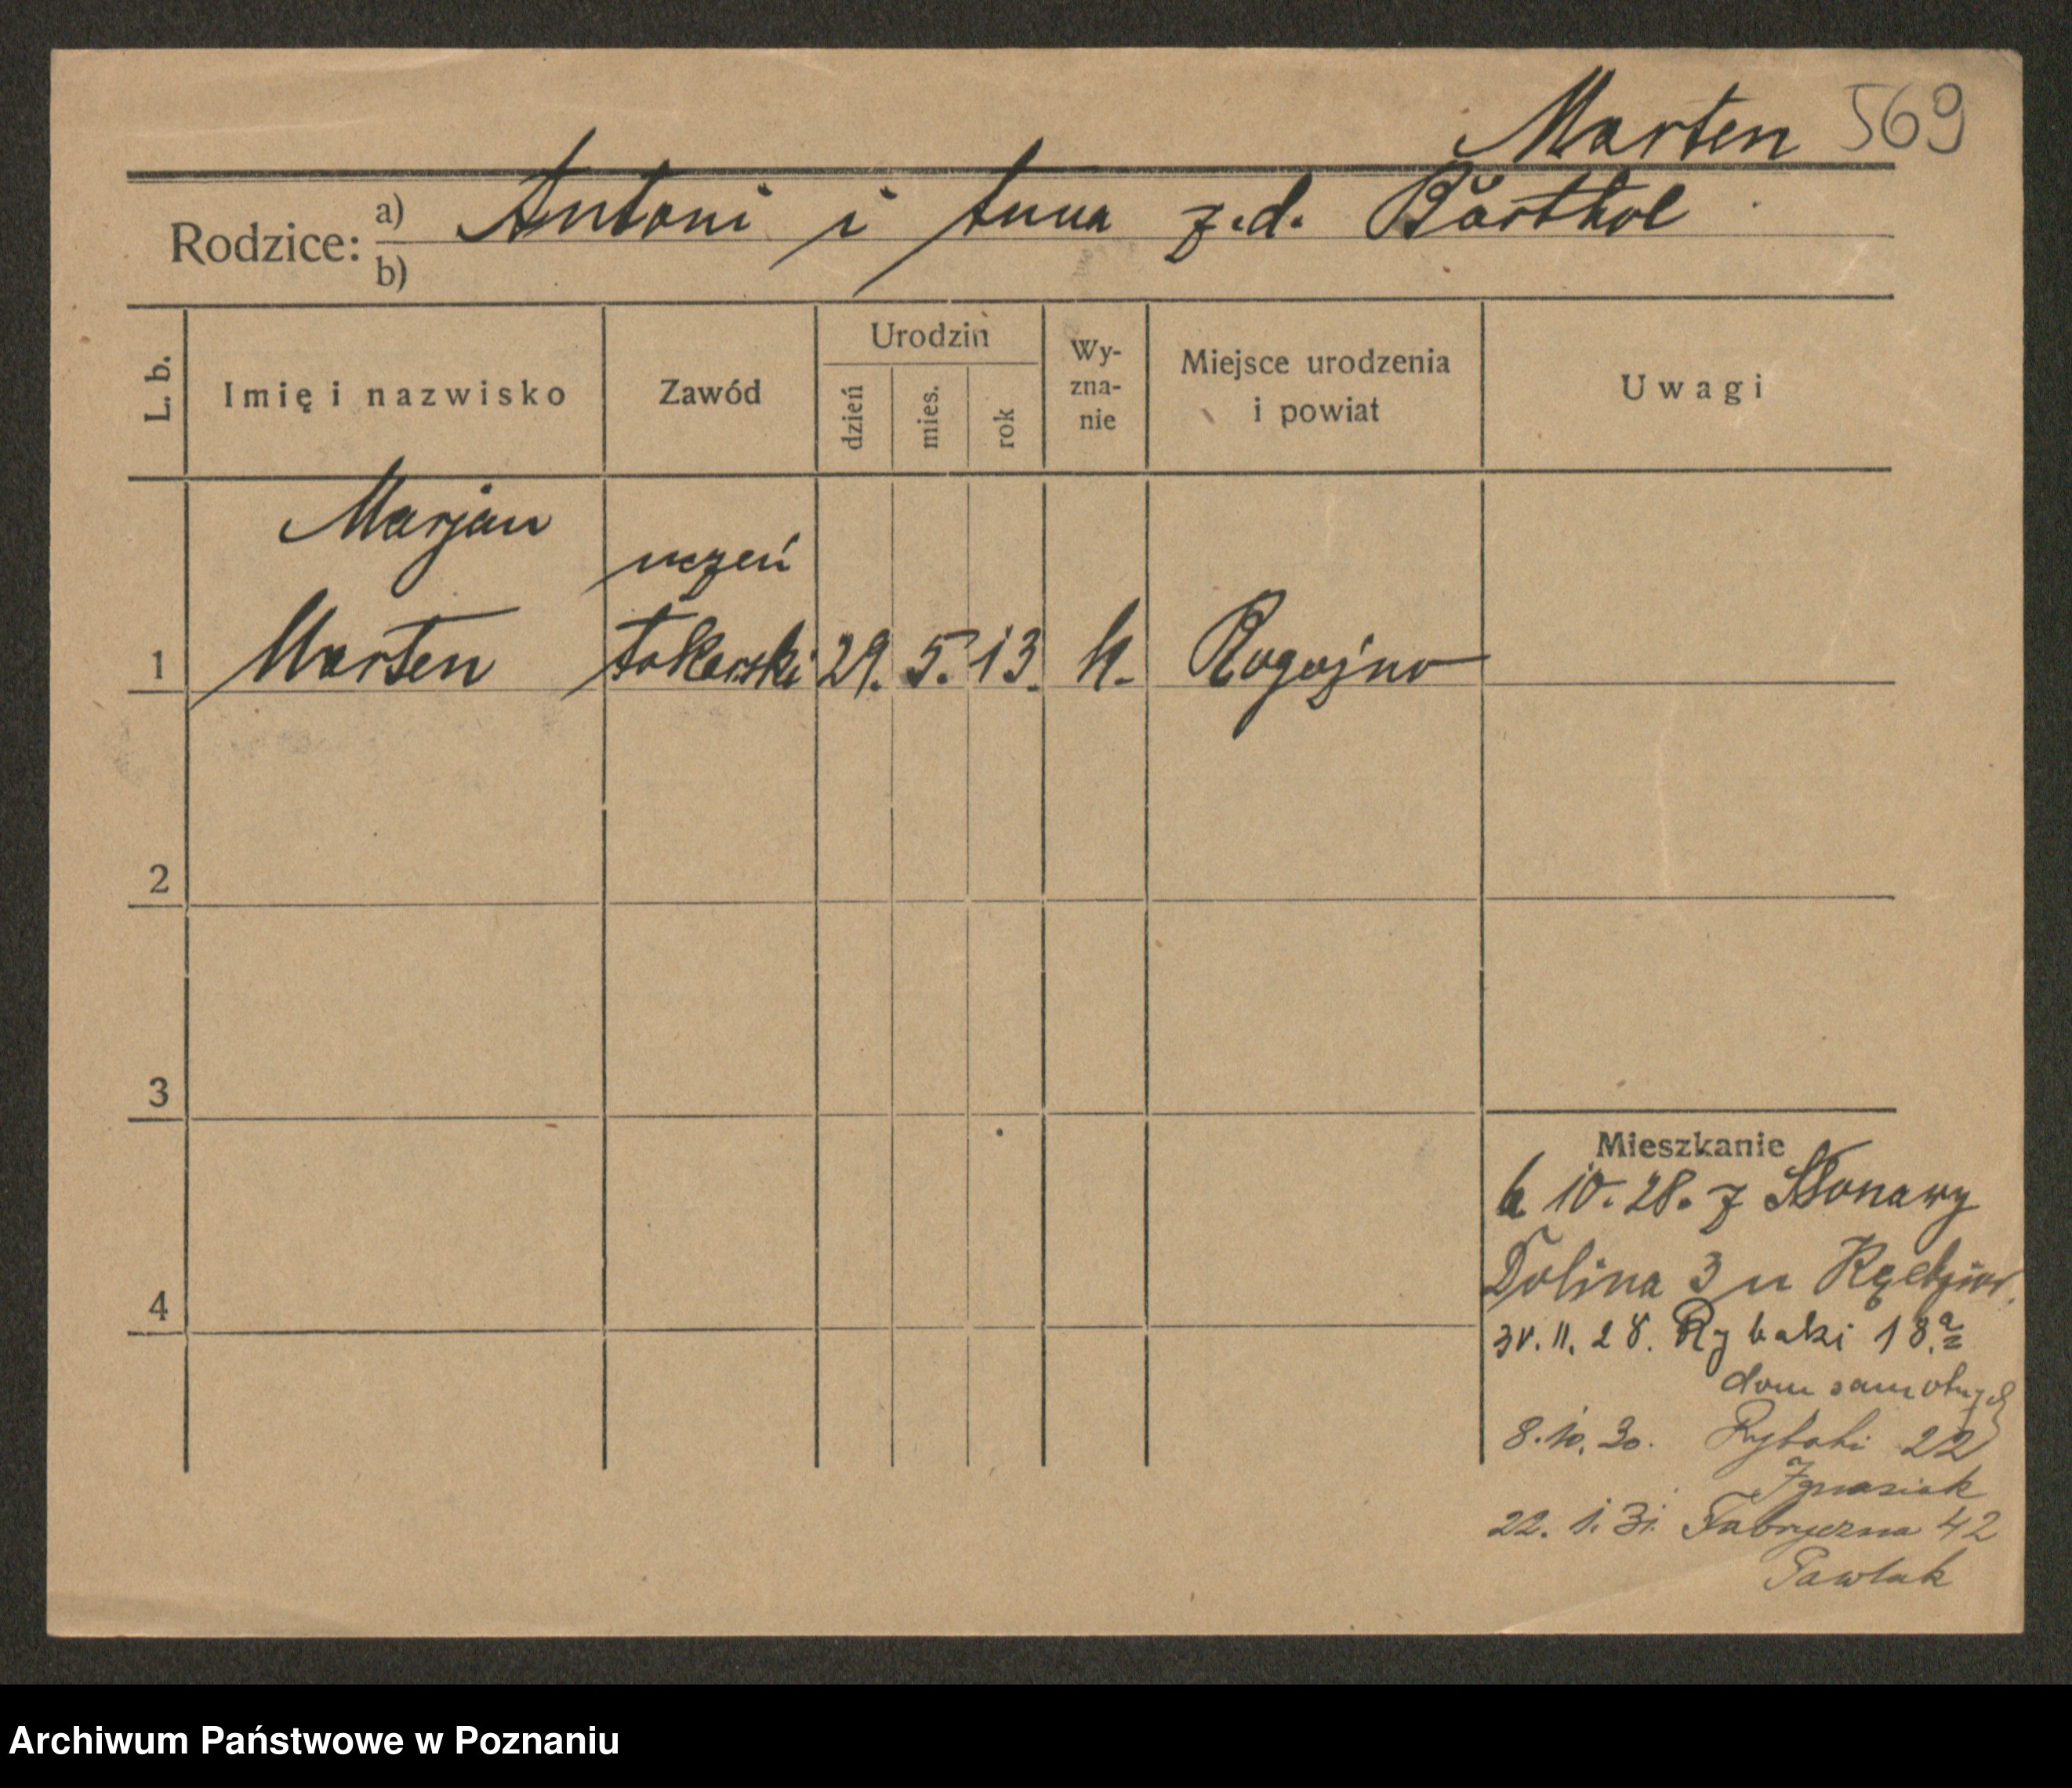 Marten 569
Rodzice: a) Antoni i Anna z.d. Barthol
b)
L. b.
Imię i nazwisko
Zawód
Urodzin
dzień
mies.
rok
Wy-
zna-
nie
Miejsce urodzenia
i powiat
Uwagi
Marjan
uczeń
1 Marten tokarski 29. 5. 13. k. Rogoźno
2
3
4
Mieszkanie
10. 28. z Słonawy
Dolina 3 u
30. 11. 28. Rybaki 18a
dom samotnych
8. 10. 30. Rybaki 22
Ignasiak
22. 1. 31. Fabryczna 42
Pawlak
Archiwum Państwowe w Poznaniu